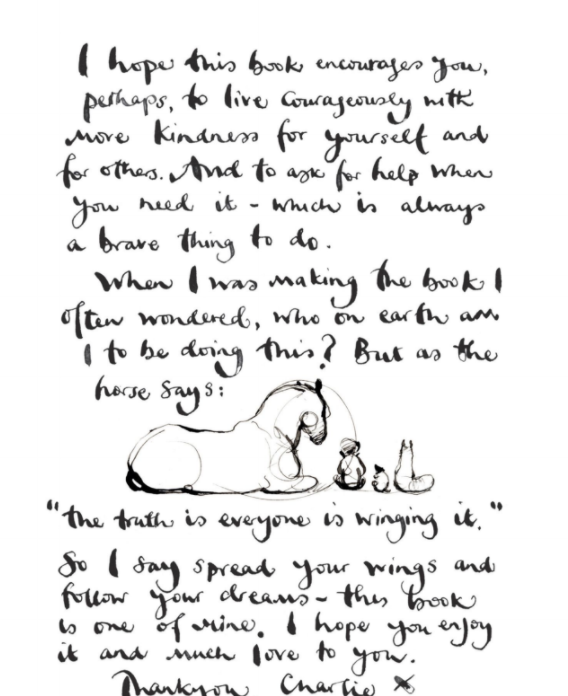 I hope this book encourages you,
perhaps, to live courageously with
more kindness for yourself and
for others. And to ask for help when
you need it - which is always
a brave thing to do.
When I was making the book I
often wondered, who on earth am
I to be doing this? But as the
horse says:
"the truth is everyone is winging it."
So I say spread your wings and
follow your dreams - this book
is one of mine. I hope you enjoy
it and much love to you.
Thankyou Charlie x